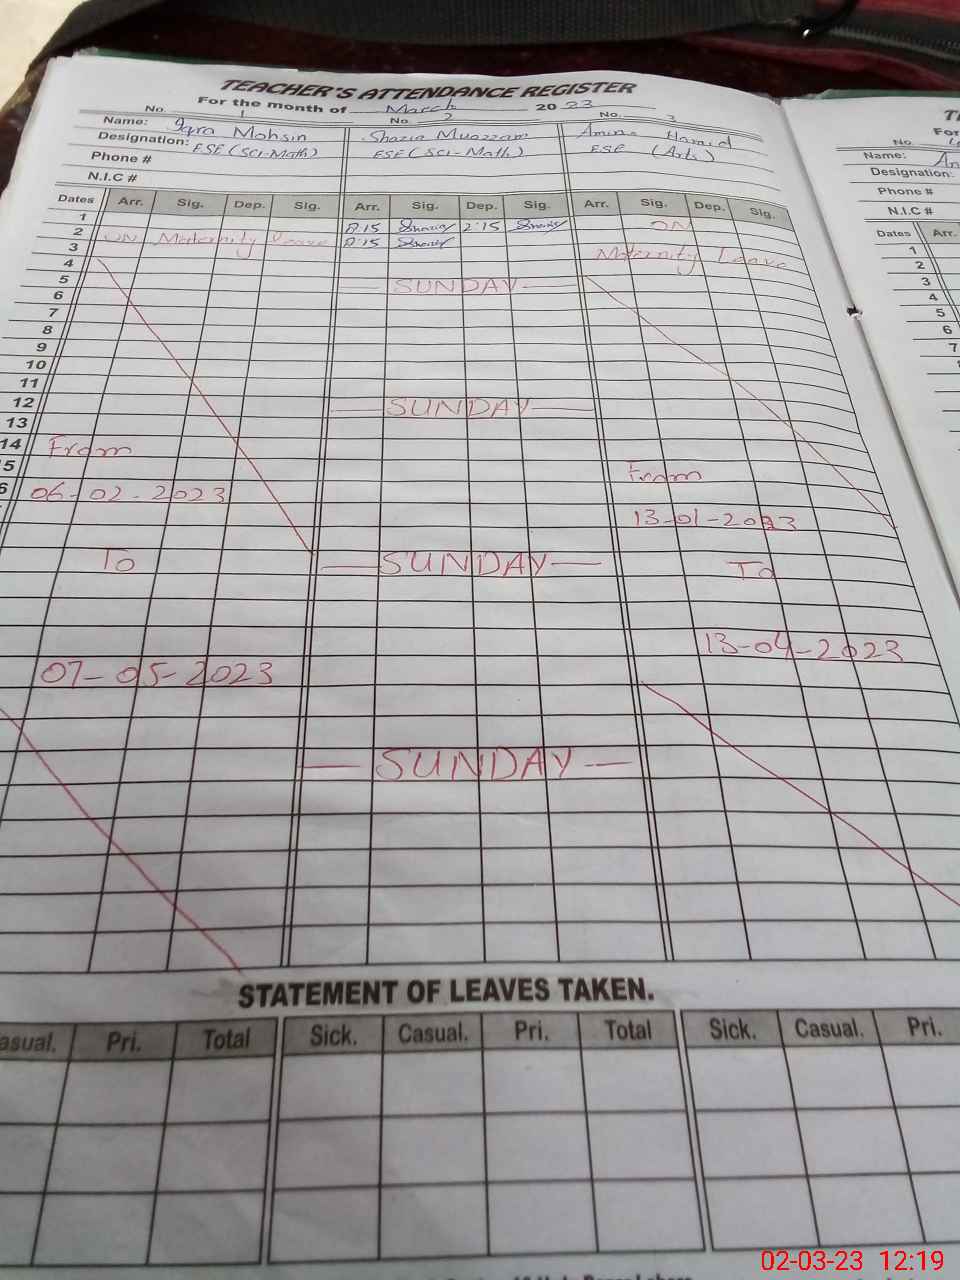 TEACHER'S ATTENDANCE REGISTER
For the month of March 2023
No. 1 No. 2 No. 3
Name: Iqra Mohsin Shazia Muazzam Amina Hamid
Designation: ESE (Sci-Math) ESE (Sci-Math) ESE (Arts)
Phone #
N.I.C #
Dates Arr. Sig. Dep. Sig. Arr. Sig. Dep. Sig. Arr. Sig. Dep. Sig.
1 8:15 Shazia 2:15 Shazia ON
2 ON Maternity Leave 8:15 Shazia
3 Maternity Leave
4
5 SUNDAY
6
7
8
9
10
11
12 SUNDAY
13
14 From
15 From
6 06-02-2023
13-01-2023
To SUNDAY To
13-04-2023
07-05-2023
SUNDAY
STATEMENT OF LEAVES TAKEN.
asual. Pri. Total Sick. Casual. Pri. Total Sick. Casual. Pri.
For
No.
Name: An
Designation:
Phone #
N.I.C #
Dates Arr.
1
2
3
4
5
6
7
02-03-23 12:19